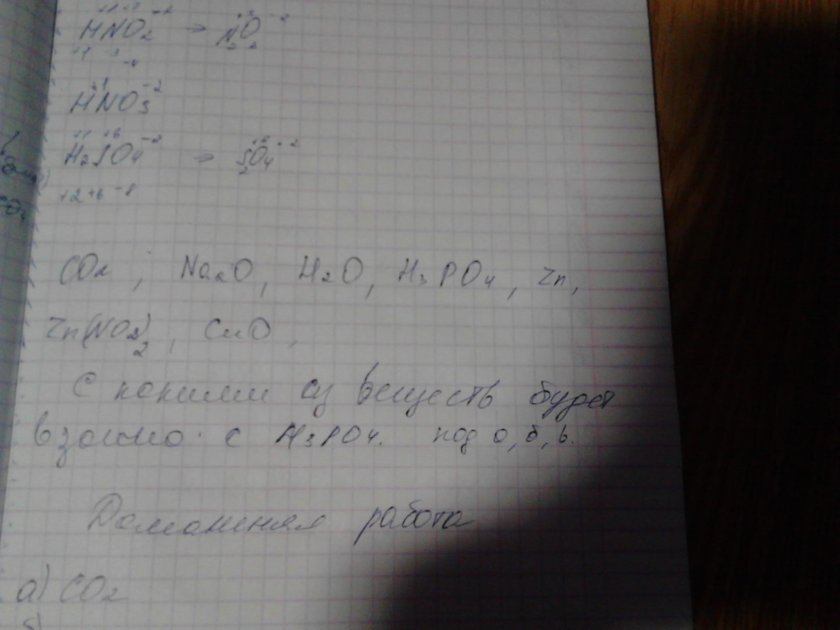 HNO2 → NO
HNO3
H2SO4 → SO4
+2+6-8
CO2, Na2O, H2O, H3PO4, Zn,
Zn(NO2)2, CuO,
С какими из веществ будет
взаимо. с H3PO4. под а, б, в.
Домашняя работа
а) CO2
б)